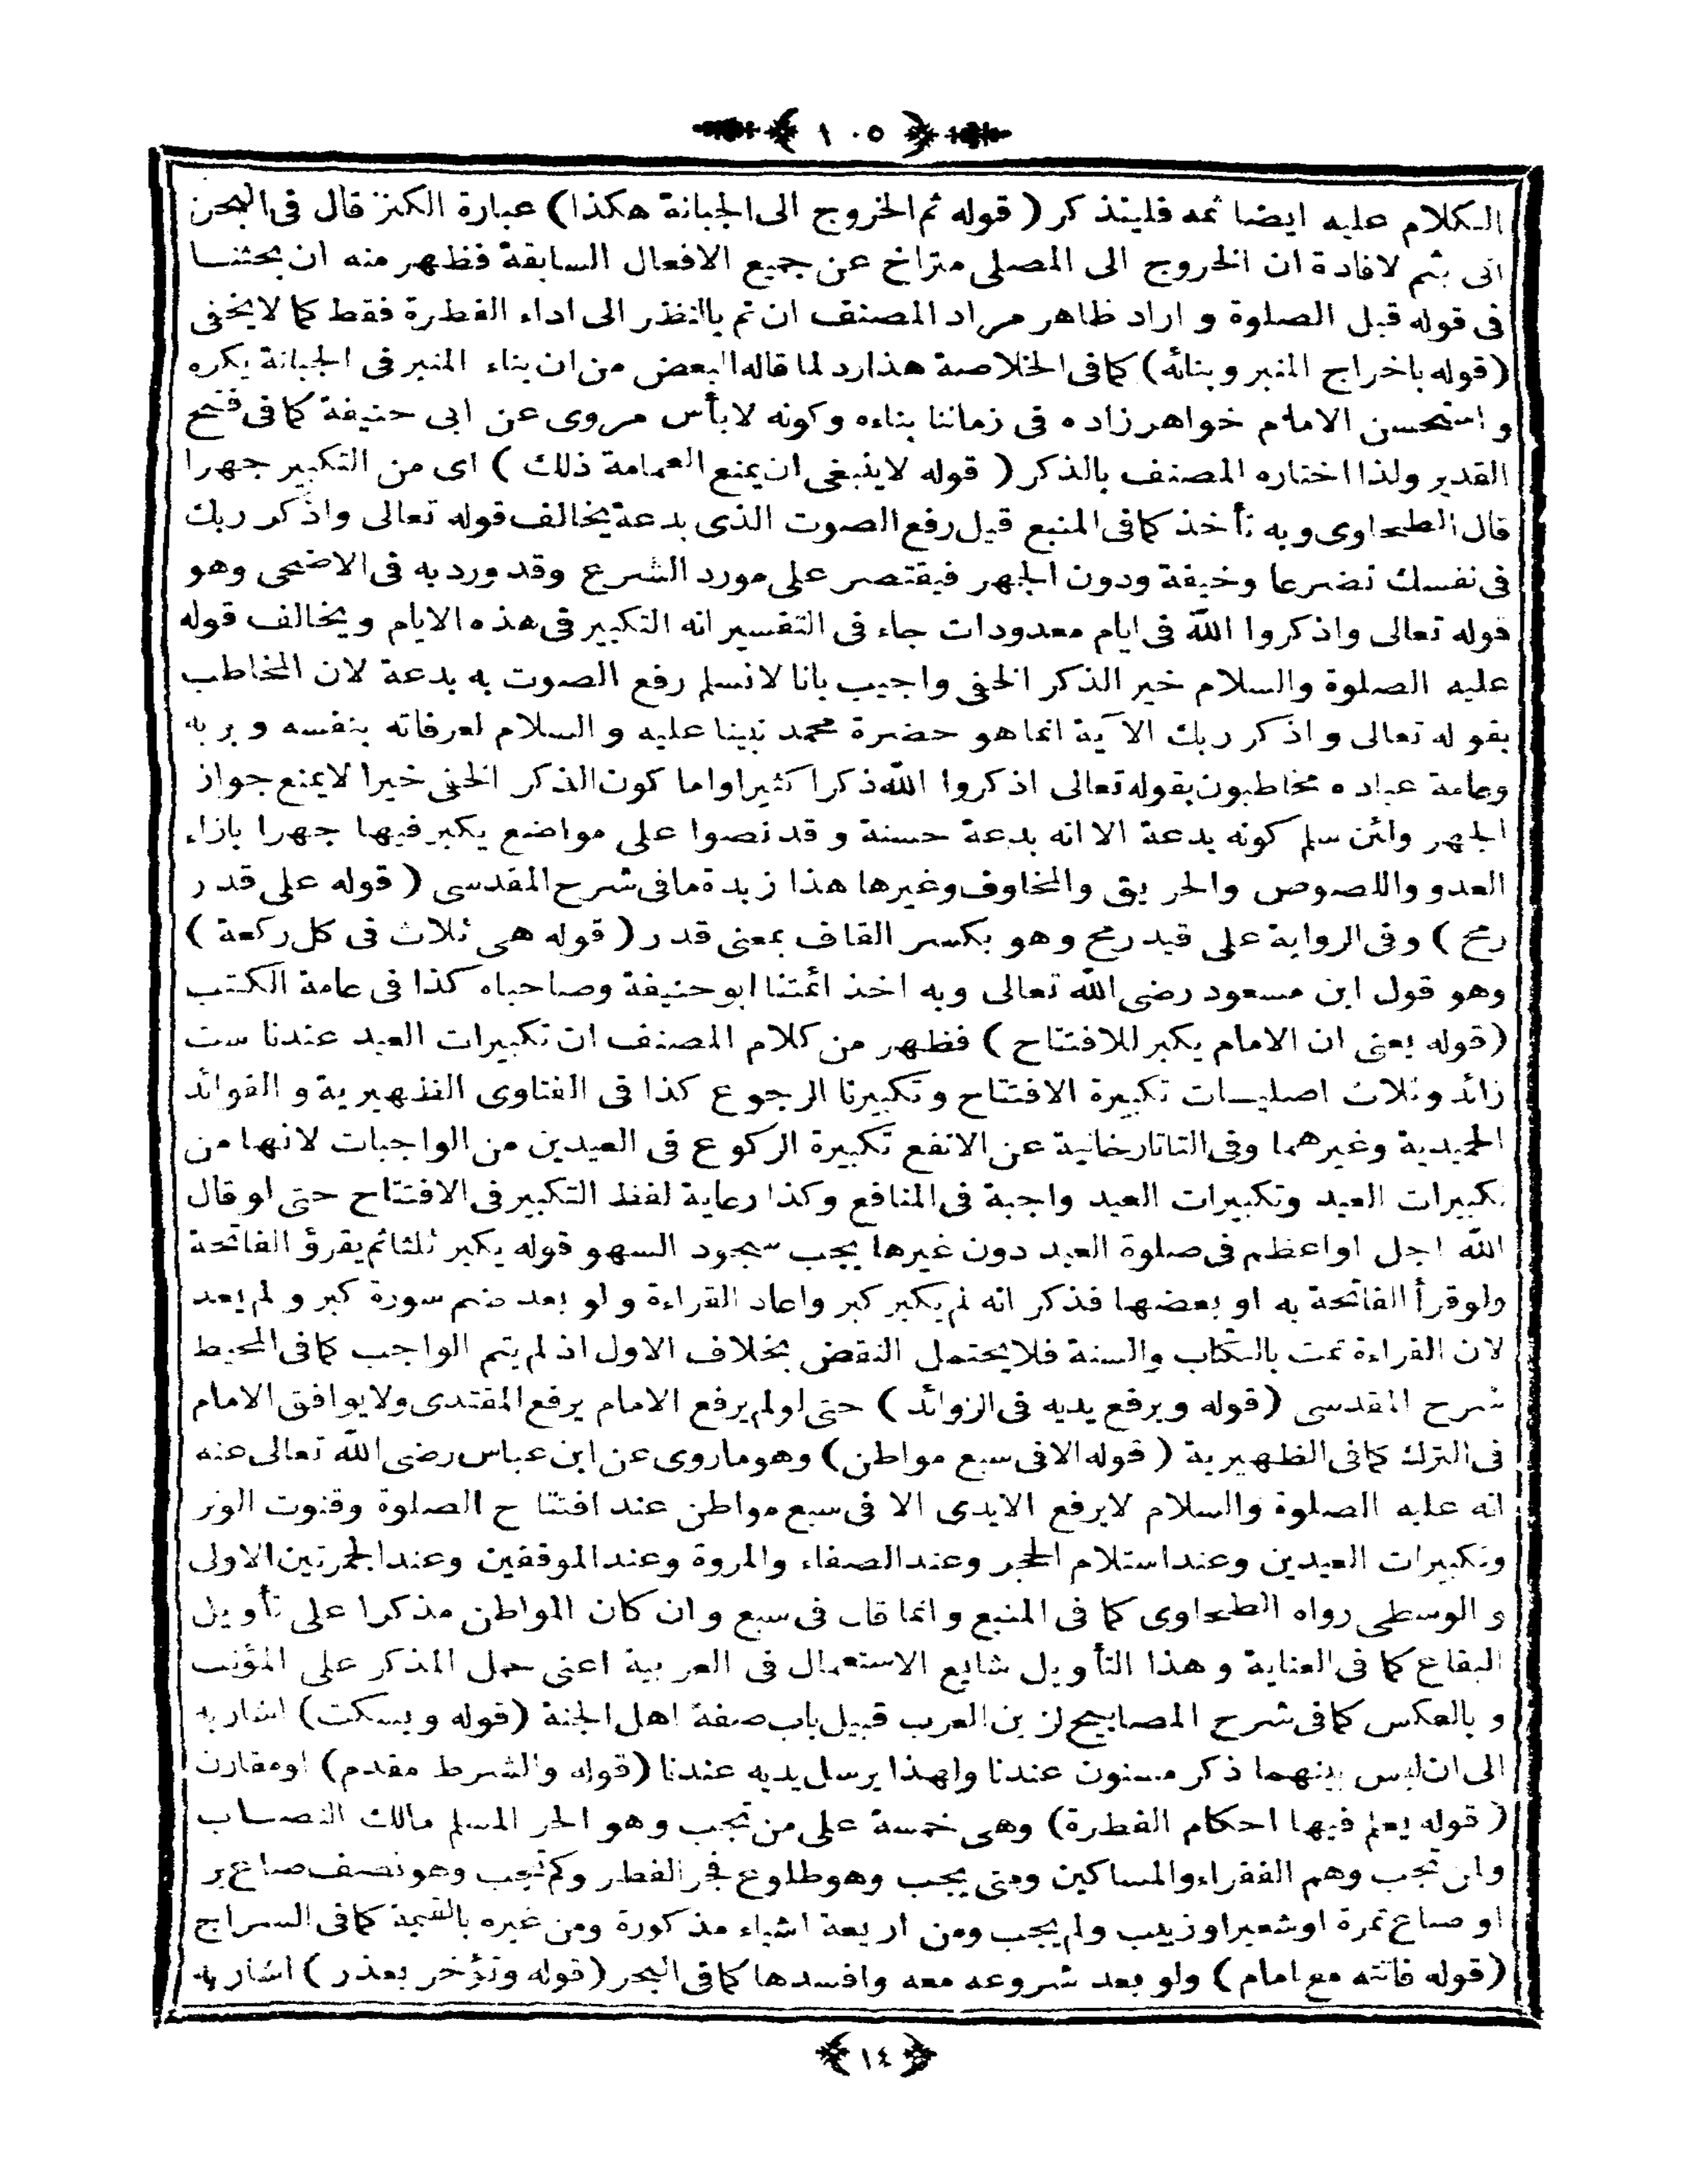 ﴿ ١٠٥ ﴾
الكلام عليه ايضا ثمه فليتذكر ( قوله ثم الخروج الى الجبانة هكذا ) عبارة الكنز قال فى البحر
اتى بثم لافادة ان الخروج الى المصلى متراخ عن جميع الافعال السابقة فظهر منه ان بحثنا
فى قوله قبل الصلوة و اراد ظاهر مراد المصنف ان تم بالنظر الى اداء الفطرة فقط كما لا يخفى
( قوله باخراج المنبر وبنائه ) كما فى الخلاصة هذا رد لما قاله البعض من ان بناء المنبر فى الجبانة يكره
و استحسن الامام خواهر زاده فى زماننا بناءه وكونه لا بأس مروى عن ابى حنيفة كما فى فتح
القدير ولذا اختاره المصنف بالذكر ( قوله لا ينبغى ان يمنع العمامة ذلك ) اى من التكبير جهرا
قال الطحاوى وبه نأخذ كما فى المنبع قيل رفع الصوت الذى بدعة يخالف قوله تعالى واذكر ربك
فى نفسك تضرعا وخيفة ودون الجهر فيقتصر على مورد الشرع وقد ورد به فى الاضحى وهو
قوله تعالى واذكروا الله فى ايام معدودات جاء فى التفسير انه التكبير فى هذه الايام ويخالف قوله
عليه الصلوة والسلام خير الذكر الخفى واجيب بانا لا نسلم رفع الصوت به بدعة لان المخاطب
بقوله تعالى واذكر ربك الآية انما هو حضرة محمد نبينا عليه و السلام لعرفانه بنفسه و بربه
وعامة عباده مخاطبون بقوله تعالى اذكروا الله ذكرا كثيرا واما كون الذكر الخفى خيرا لا يمنع جواز
الجهر ولئن سلم كونه بدعة الا انه بدعة حسنة و قد نصوا على مواضع يكبر فيها جهرا بازاء
العدو واللصوص والحريق والمخاوف وغيرها هذا زبدة ما فى شرح المقدسى ( قوله على قدر
رمح ) وفى الرواية على قيد رمح وهو بكسر القاف بمعنى قدر ( قوله هى ثلاث فى كل ركعة )
وهو قول ابن مسعود رضى الله تعالى وبه اخذ ائمتنا ابو حنيفة وصاحباه كذا فى عامة الكتب
( قوله يعنى ان الامام يكبر للافتتاح ) فظهر من كلام المصنف ان تكبيرات العيد عندنا ست
زائد وثلاث اصليات تكبيرة الافتتاح و تكبيرتا الرجوع كذا فى الفتاوى الظهيرية و الفوائد
الحميدية وغيرهما وفى التاتارخانية عن الانفع تكبيرة الركوع فى العيدين من الواجبات لانها من
تكبيرات العيد وتكبيرات العيد واجبة فى المنافع وكذا رعاية لفظ التكبير فى الافتتاح حتى لو قال
الله اجل او اعظم فى صلوة العيد دون غيرها يجب سجود السهو قوله يكبر ثلثا ثم يقرؤ الفاتحة
ولو قرأ الفاتحة به او بعضها فذكر انه لم يكبر كبر واعاد القراءة و لو بعد ضم سورة كبر و لم يعد
لان القراءة تمت بالكتاب والسنة فلا يحتمل النقض بخلاف الاول اذ لم يتم الواجب كما فى المحيط
شرح المقدسى ( قوله ويرفع يديه فى الزوائد ) حتى لو لم يرفع الامام يرفع المقتدى ولا يوافق الامام
فى الترك كما فى الظهيرية ( قوله الا فى سبع مواطن ) وهو ما روى عن ابن عباس رضى الله تعالى عنه
انه عليه الصلوة والسلام لا يرفع الايدى الا فى سبع مواطن عند افتتاح الصلوة وقنوت الوتر
وتكبيرات العيدين وعند استلام الحجر وعند الصفاء والمروة وعند الموقفين وعند الجمرتين الاولى
و الوسطى رواه الطحاوى كما فى المنبع و انما قاب فى سبع و ان كان المواطن مذكرا على تأويل
البقاع كما فى العناية و هذا التأويل شايع الاستعمال فى العربية اعنى حمل المذكر على المؤنث
و بالعكس كما فى شرح المصابيح لزين العرب قبيل باب صفة اهل الجنة ( قوله ويسكت ) اشار به
الى ان ليس بينهما ذكر مسنون عندنا ولهذا يرسل يديه عندنا ( قوله والشرط مقدم ) او مقارن
( قوله يعلم فيها احكام الفطرة ) وهى خمسة على من تجب وهو الحر المسلم مالك النصاب
ولمن تجب وهم الفقراء والمساكين ومتى يجب وهو طلوع فجر الفطر وكم تجب وهو نصف صاع بر
او صاع تمرة او شعير او زبيب ولم يجب ومن اربعة اشياء مذكورة ومن غيره بالقيمة كما فى السراج
( قوله فاتته مع امام ) ولو بعد شروعه معه وافسدها كما فى البحر ( قوله وتؤخر بعذر ) اشار به
﴿ ١٤ ﴾